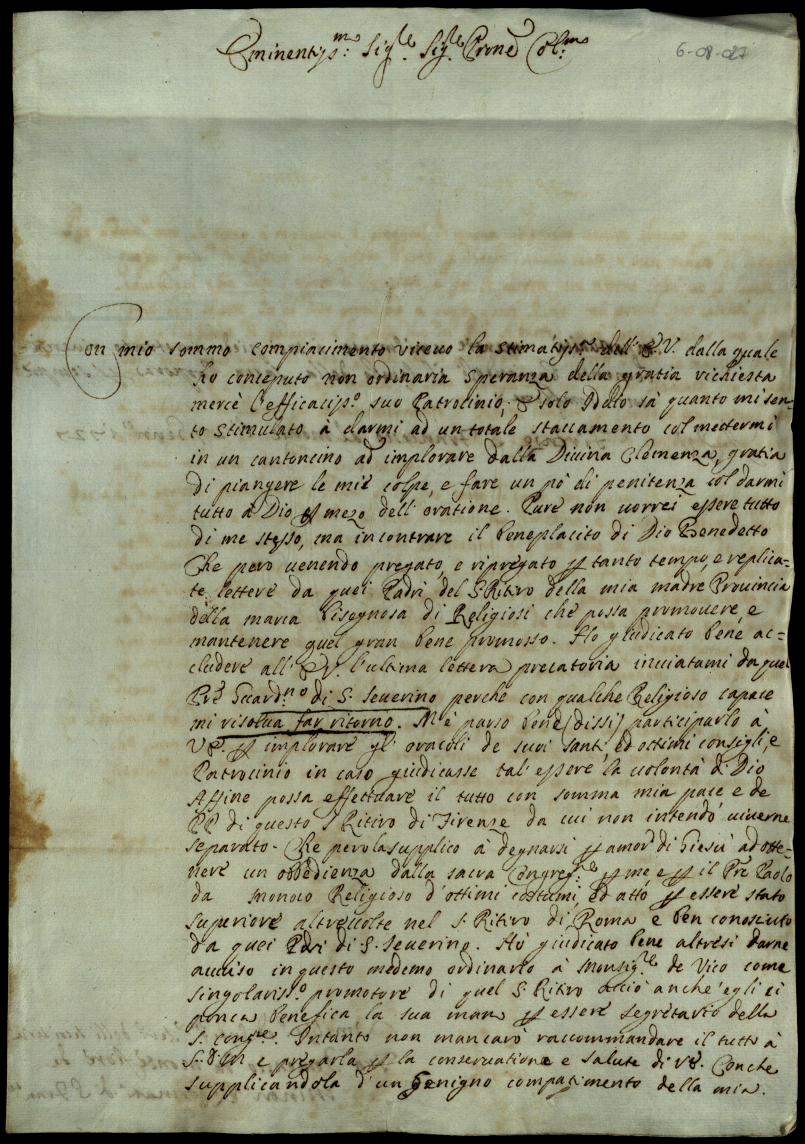 Eminentiss.mo: Sig.re Sig.re Prone Col:mo
6-08-027
Con mio sommo compiacimento ricevo la stimatiss.ma dell' E.V. dalla quale
ho conceputo non ordinaria speranza della gratia richiesta
mercè l'efficaciss.o suo Patrocinio, e solo Iddio sà quanto mi sen-
to stimulato à darmi ad un totale staccamento col mettermi
in un cantoncino ad implorare dalla Divina Clemenza, gratia
di piangere le mie colpe, e fare un pò di penitenza col darmi
tutto à Dio p mezo dell' oratione. Pure non vorrei essere tutto
di me stesso, ma incontrare il beneplacito di Dio Benedetto
Che però venendo pregato, e ripregato p tanto tempo, e replica-
te lettere da quei Padri del S. Ritiro della mia madre Provincia
della marca bisognosa di Religiosi che possa promovere, e
mantenere quel gran bene promosso. Hò giudicato bene ac=
cludere all' E.V. l'ultima lettera precatoria inviatami da quel
Pre Guard.no di S. Severino perche con qualche Religioso capace
mi risolva far ritorno. M'è parso bene (dissi) participarlo à
V.E. p implorare gl' oracoli de suoi santi, ed ottimi consigli, e
Patrocinio in caso giudicasse tal' essere la volontà di Dio
Affine possa effettuare il tutto con somma mia pace e de
PP di questo S Ritiro di Firenze da cui non intendo viverne
separato. Che però la supplico à degnarsi p amor di Giesù ad otte-
nere un obbedienza dalla sacra Congreg.ne p me e p il Pre Paolo
da Monaco Religioso d'ottimi costumi, ed atto p essere stato
superiore altre volte nel S. Ritiro di Roma e ben conosciuto
da quei Pdri di S. Severino. Hò giudicato bene altresi darne
avviso in questo medemo ordinario à Monsig.re de Vico come
singolariss.o promotore di quel S. Ritiro acciò anch' egli ci
ponca benefica la sua man p essere segretario della
S. Cong.ne. Intanto non mancarò raccommandare il tutto à
S.D.M e pregarla p la conservatione e salute di V.E. Con che
supplicandola d'un benigno compatimento della mia.